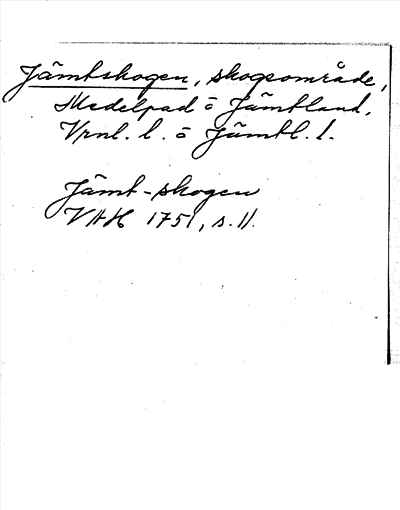 Jämtskogen, skogsområde,
Medelpad o Jämtland,
Vrnl. l. o Jämtl. l.
Jämt-skogen
VAH 1751, s. 11.